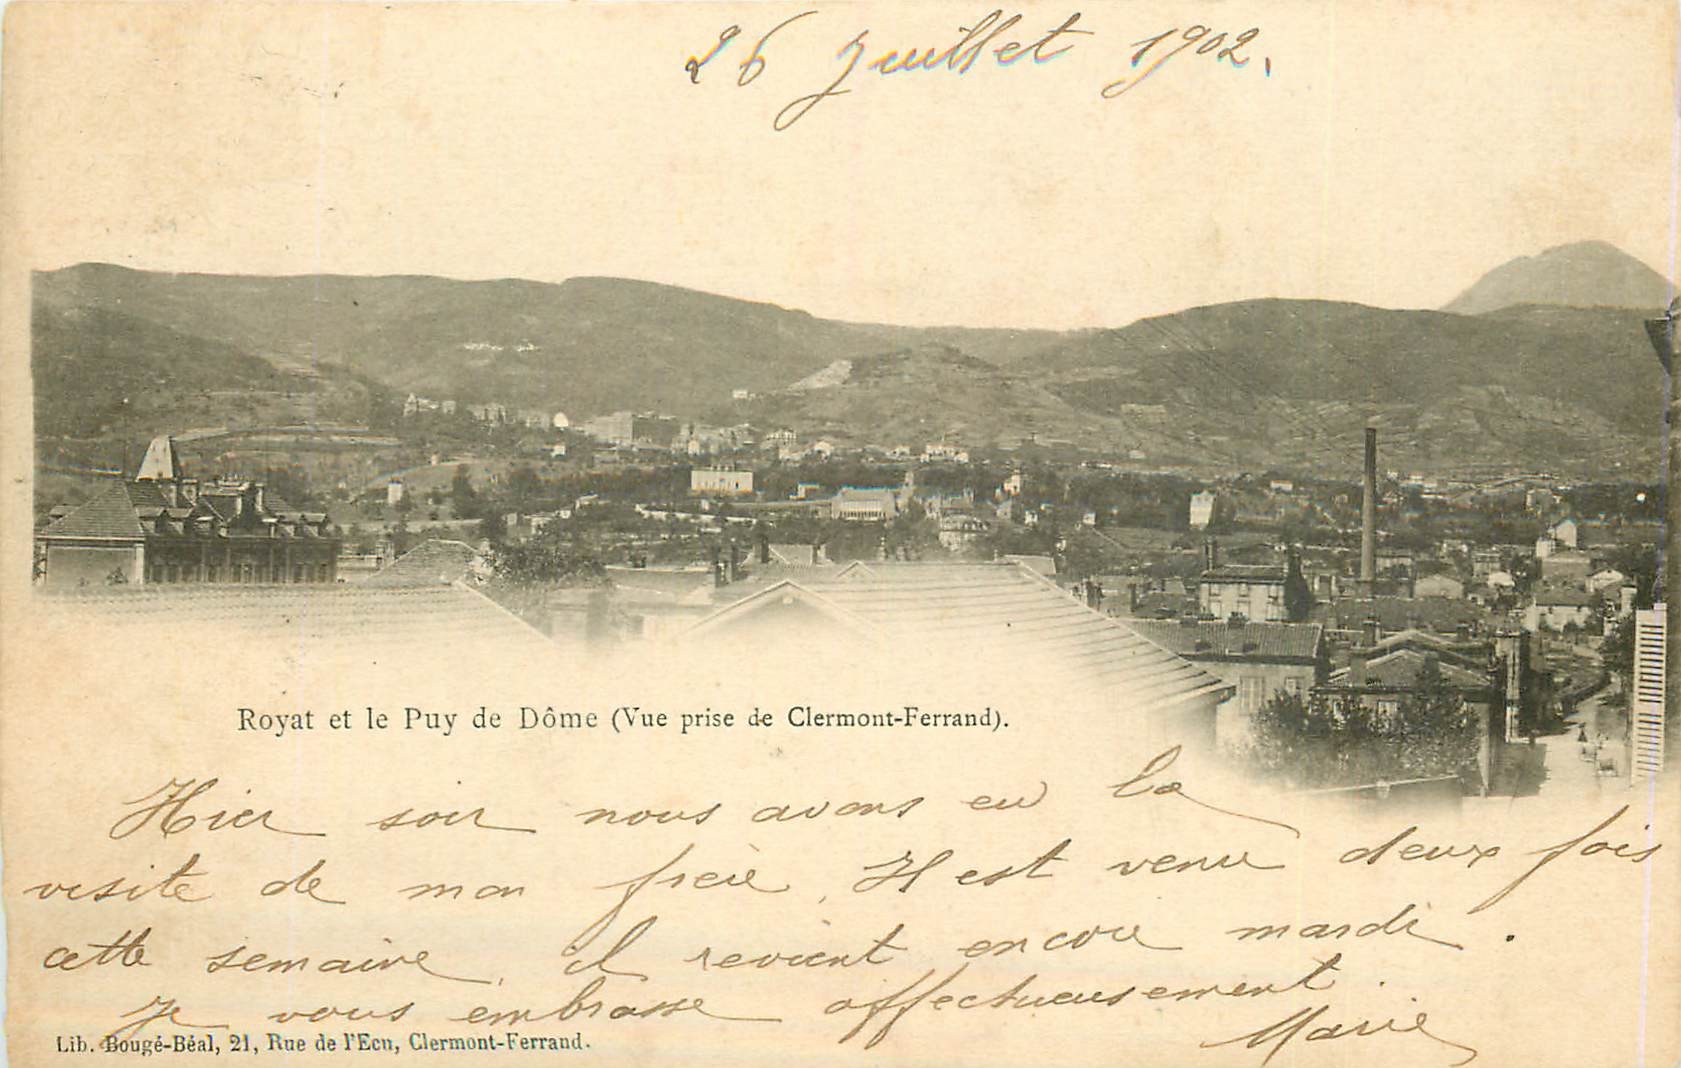 26 Juillet 1902.
Royat et le Puy de Dôme (Vue prise de Clermont-Ferrand).
Hier soir nous avons eu la
visite de mon frère. Il est venu deux fois
cette semaine, il revient encore mardi.
Je vous embrasse affectueusement.
Marie
Lib. Bougé-Béal, 21, Rue de l'Ecu, Clermont-Ferrand.